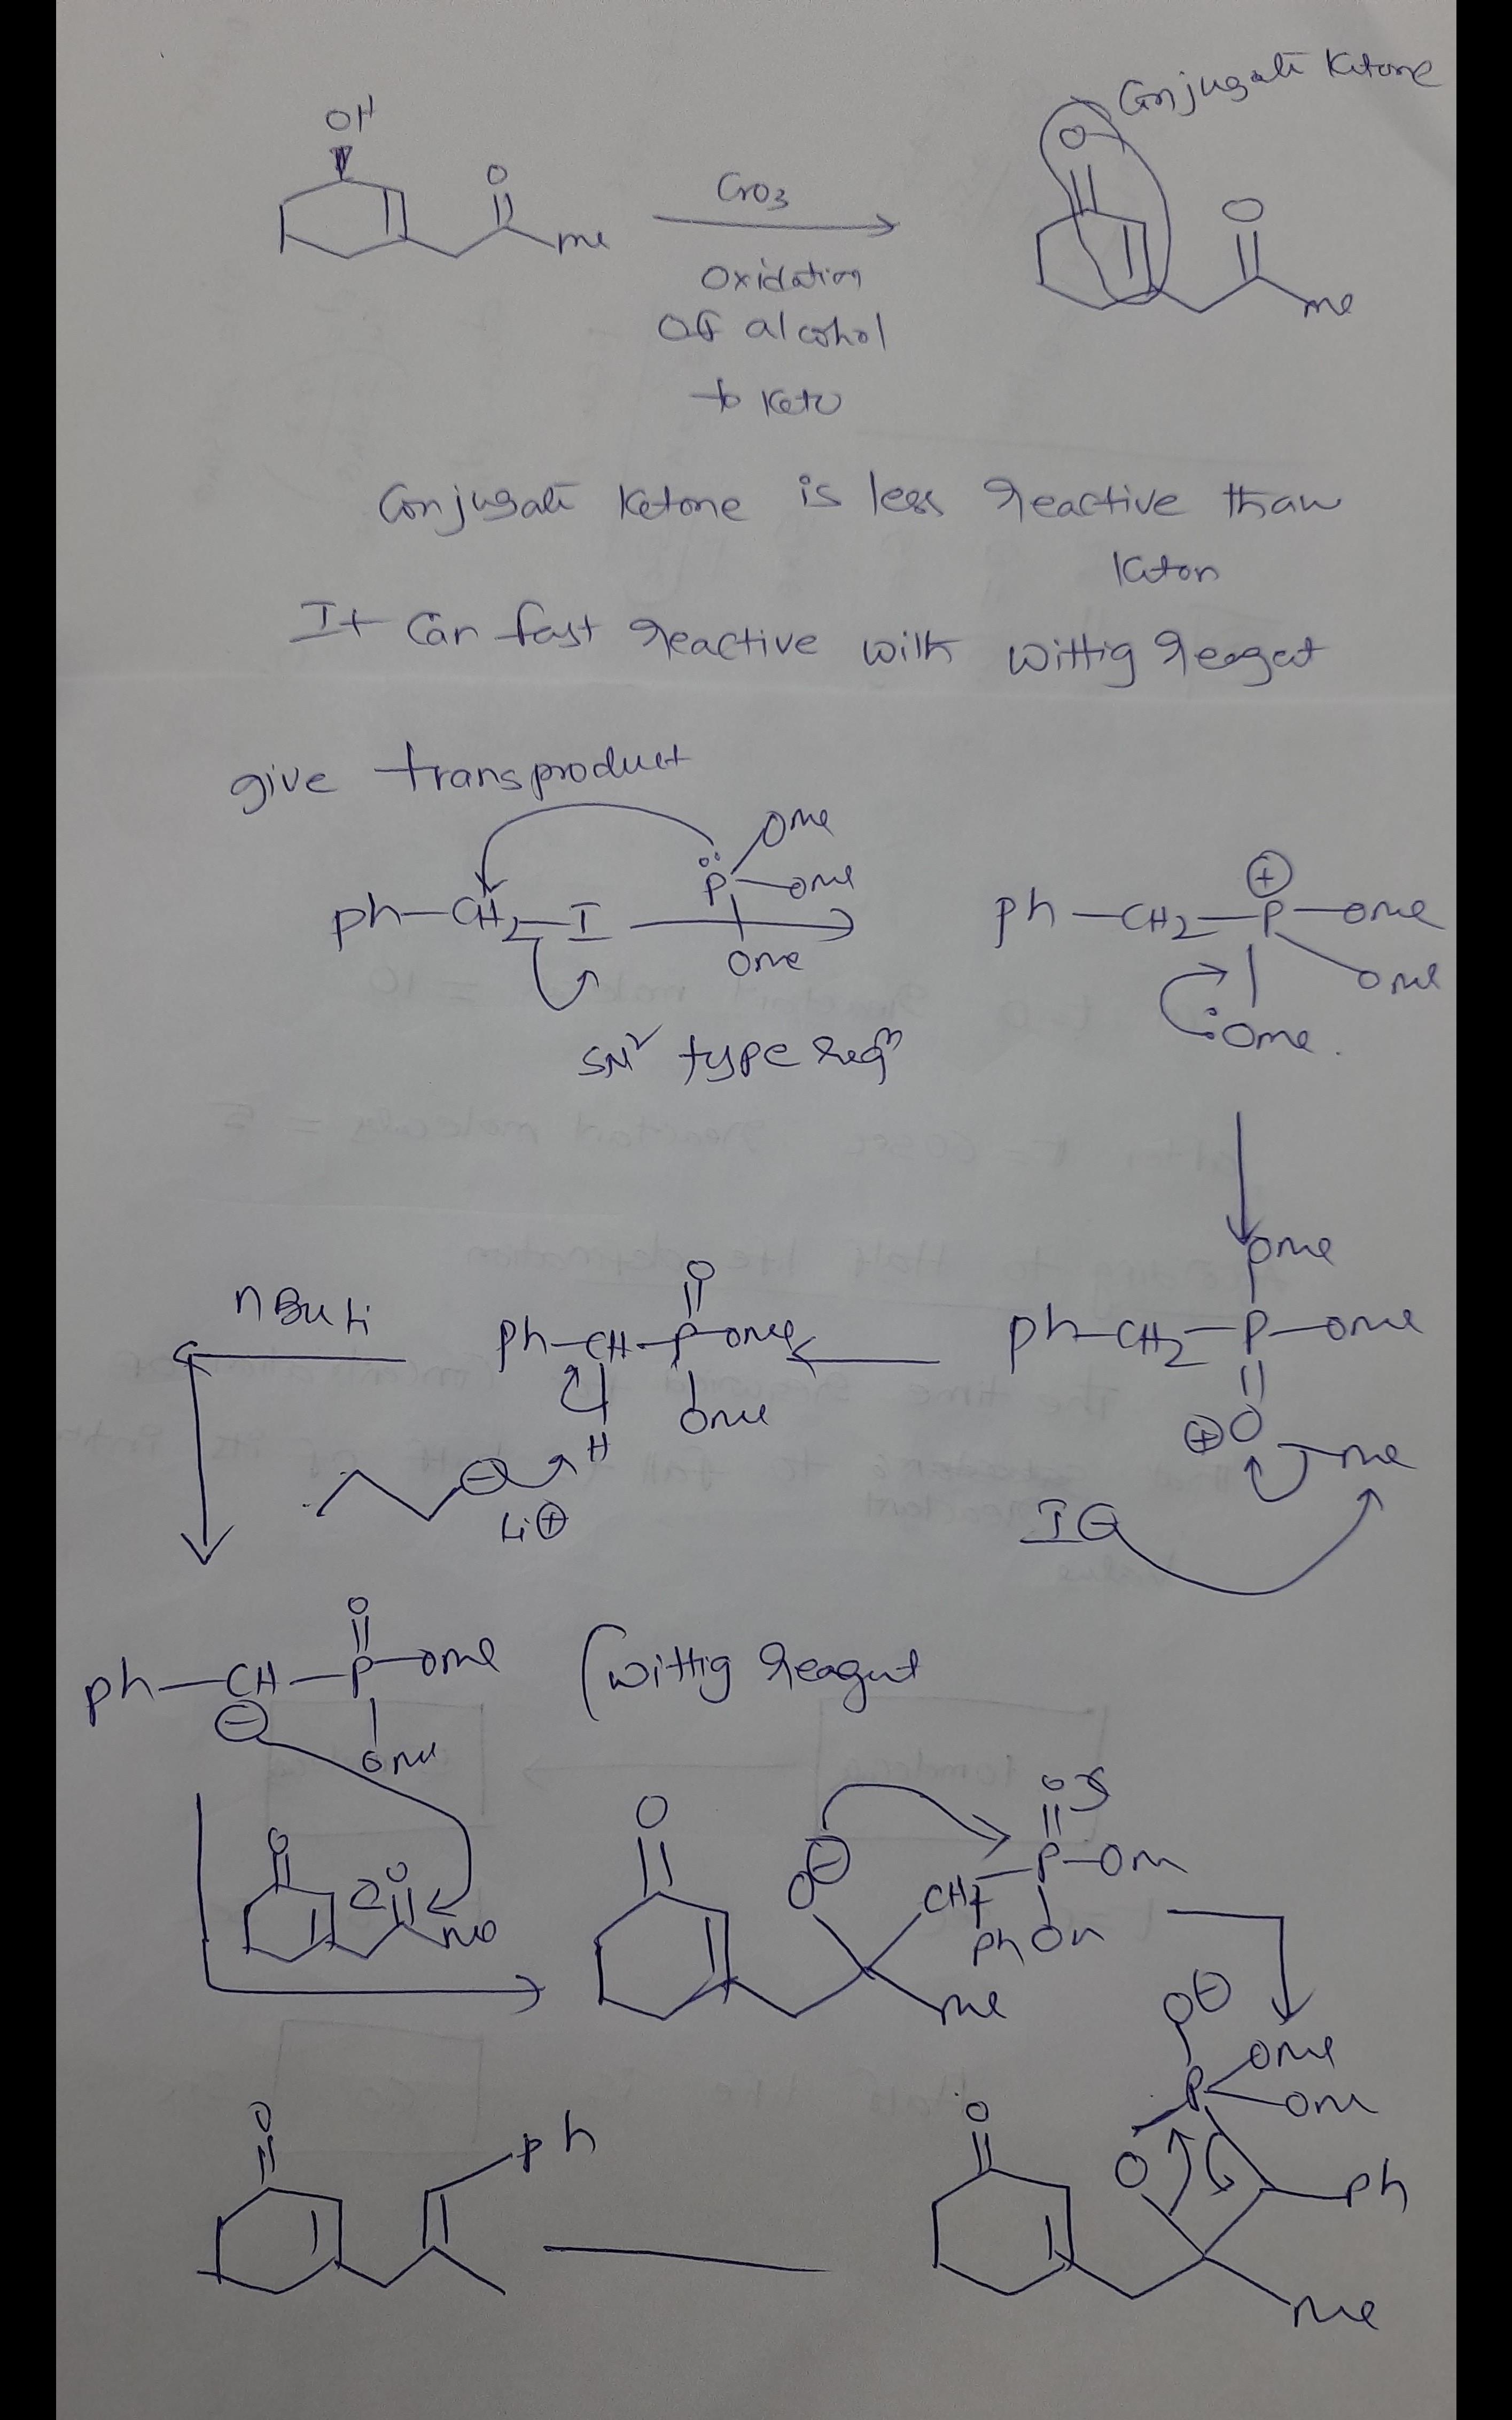 Conjugate Ketone
OH
O
me
CrO3
Oxidation
OF alcohol
to Keto
O
O
me
Conjugate Ketone is less reactive than
Keton
It can fast reactive with wittig reaget
give transproduct
Ph—CH2—I
P
Ome
Ome
Ome
SN2 type reqn
Ph—CH2—P—ome
⊕
ome
:ome.
ome
Ph—CH2—P—ome
O
⊕
me
I⊖
O
Ph—CH—P—ome
ome
H
⊖
Li⊕
nBuLi
O
Ph—CH—P—ome
⊖
ome
(wittig reagut
O
O
me
O
O⊖
CH
Ph
O
P—Om
Om
me
O⊖
P
Ome
Ome
O
Ph
O
me
O
Ph